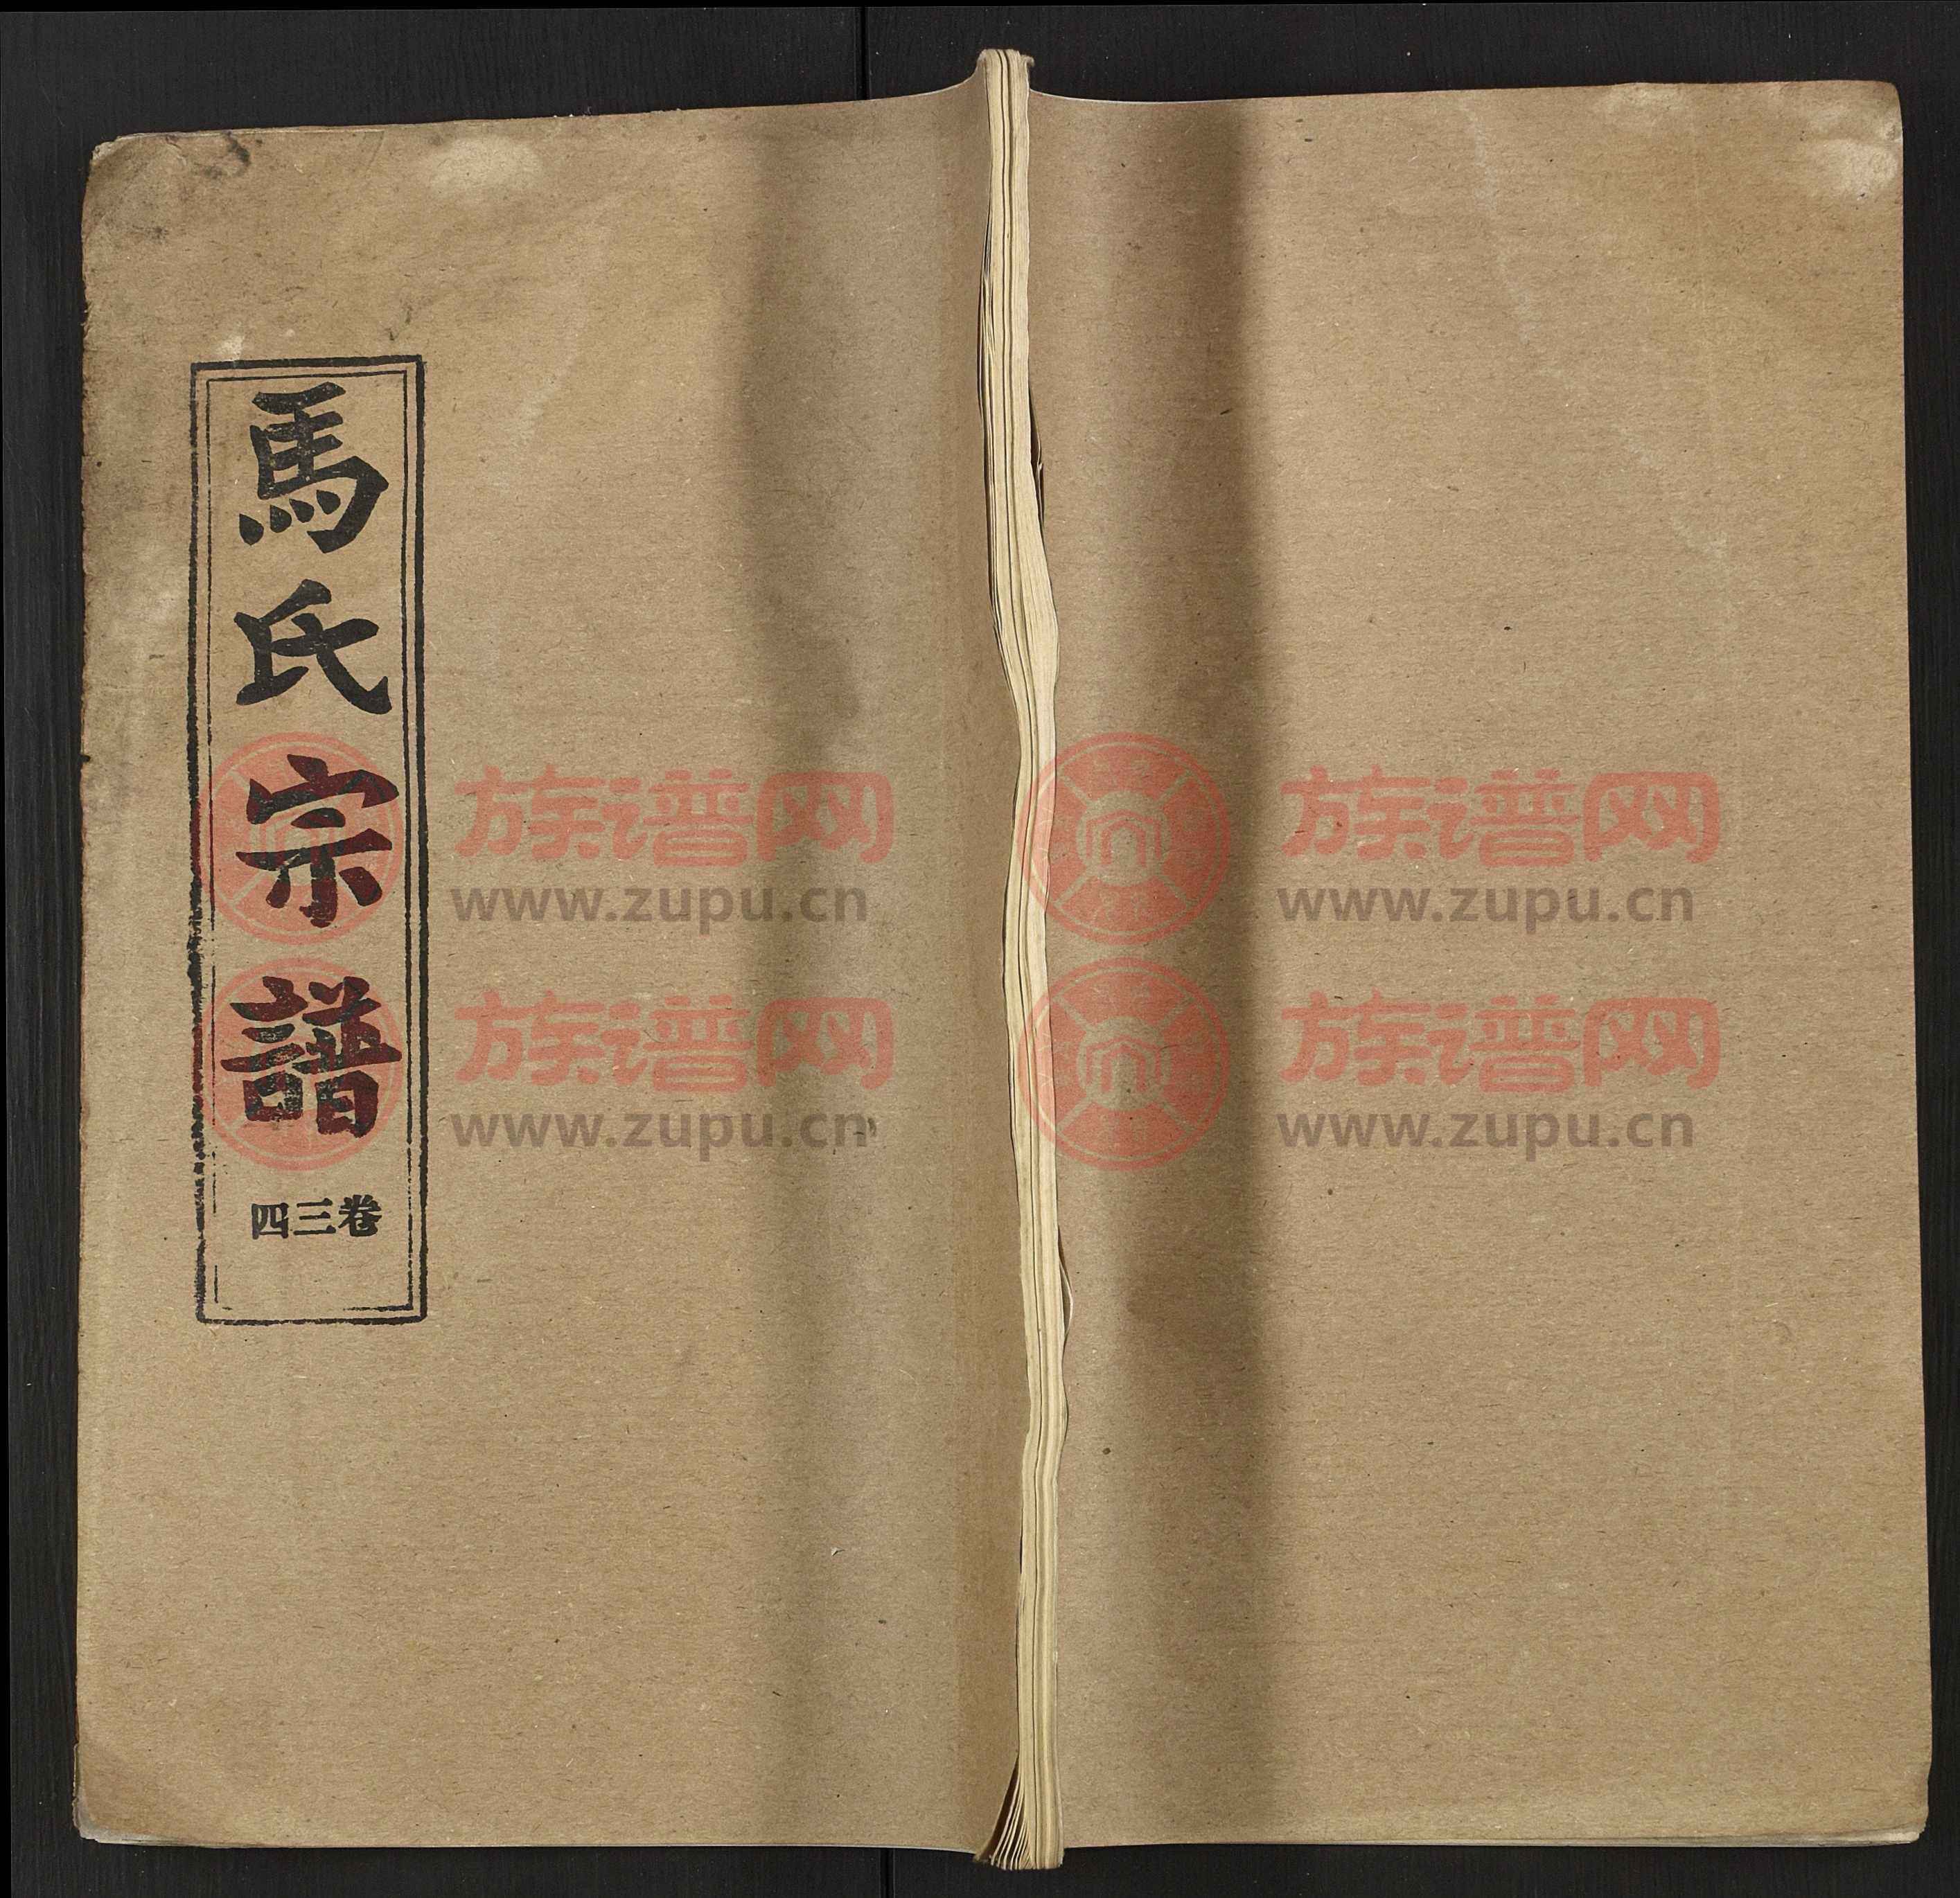 馬氏宗譜
卷三四
族谱网
www.zupu.cn
族谱网
www.zupu.cn
族谱网
www.zupu.cn
族谱网
www.zupu.cn